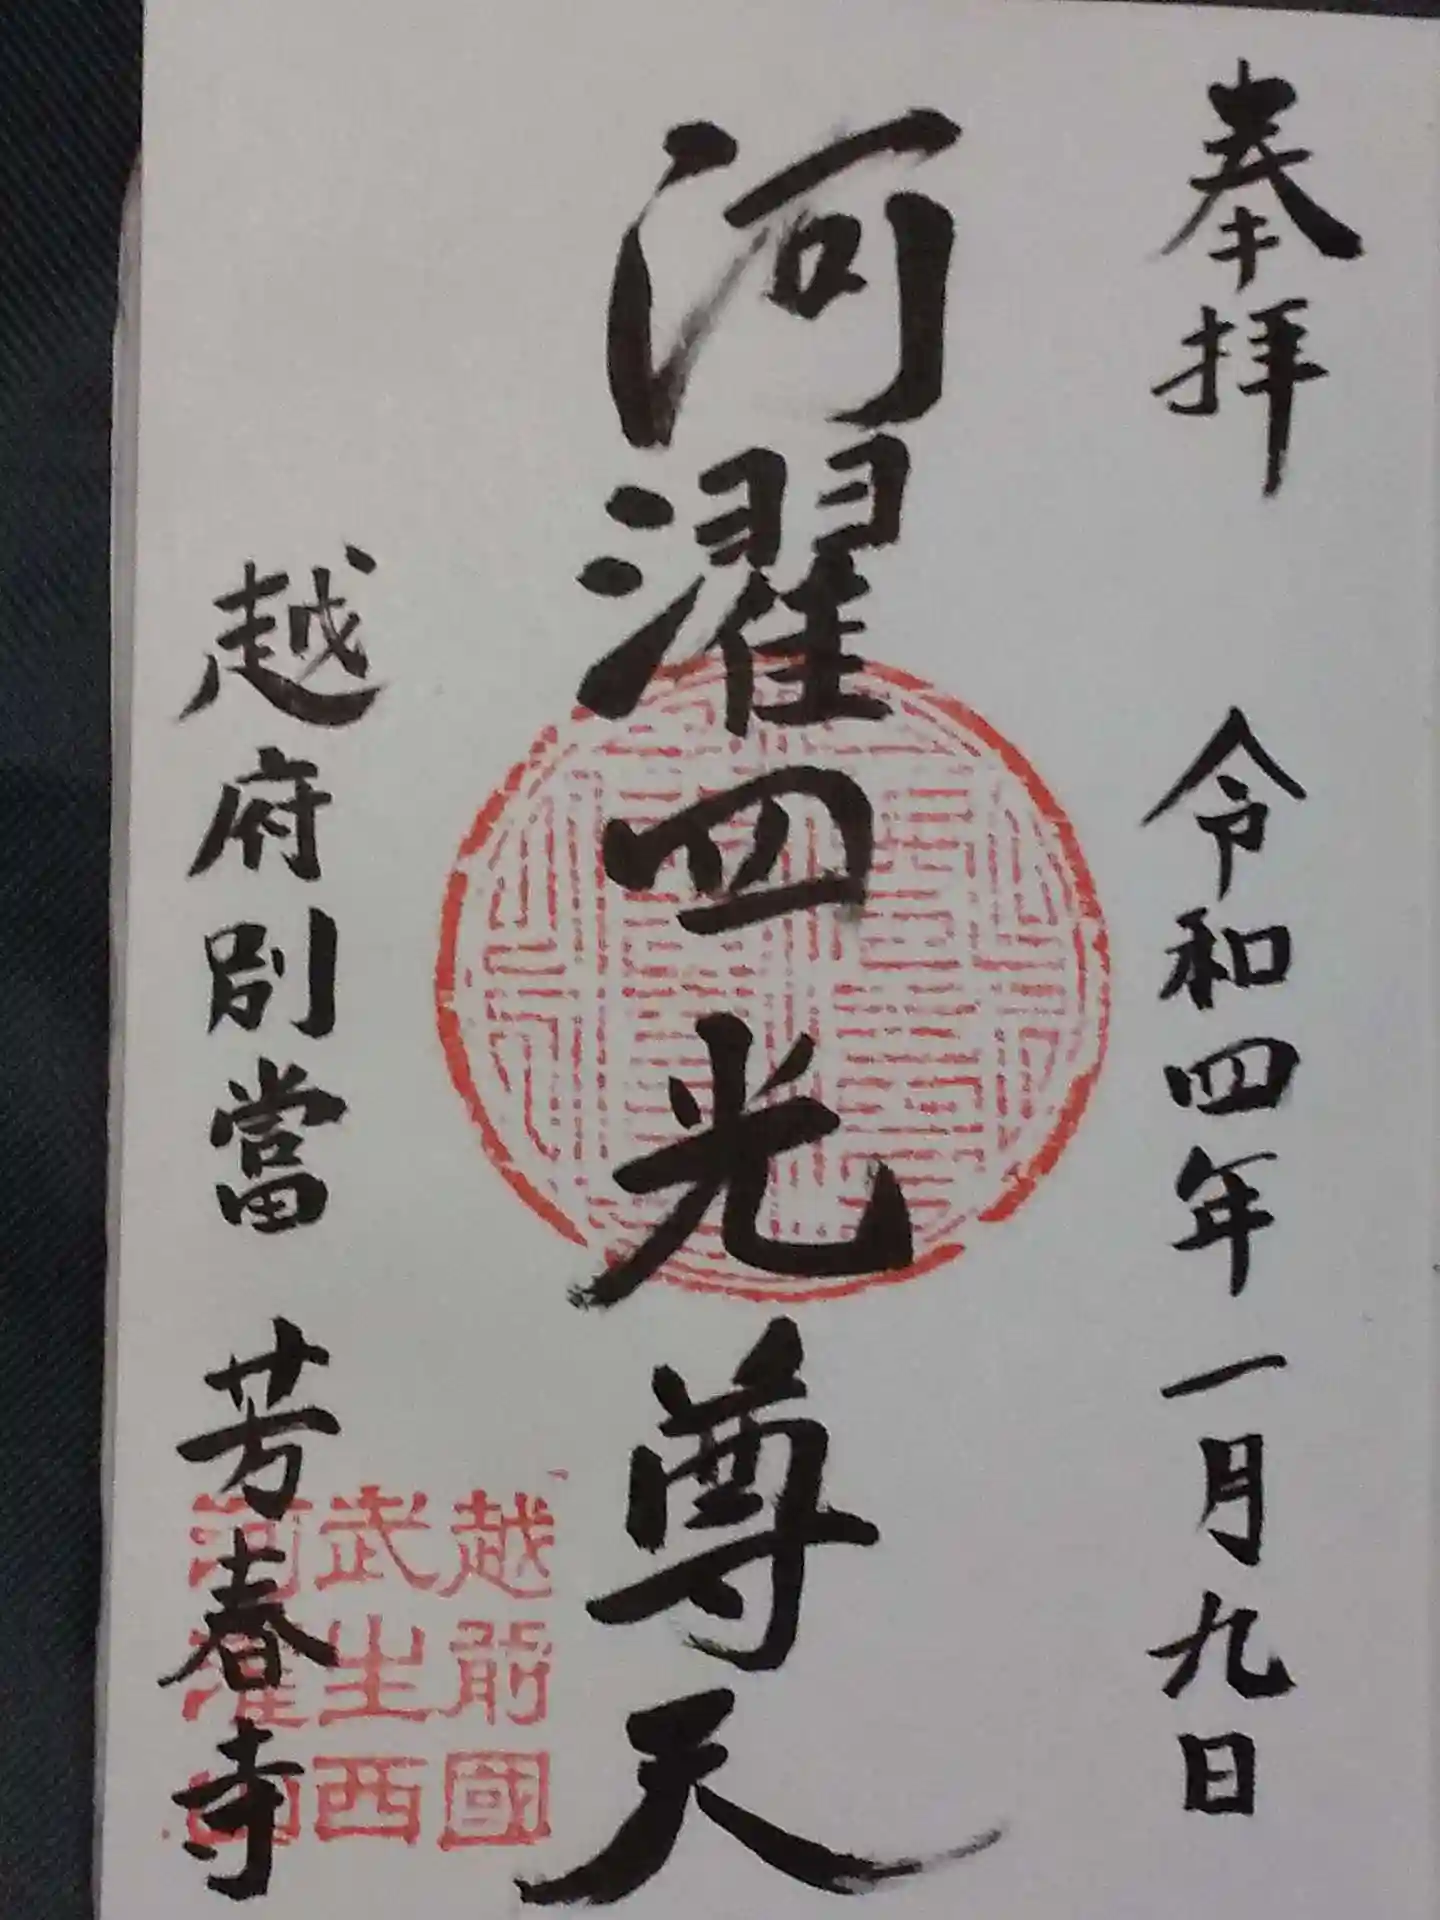 奉拝 令和四年一月九日
河濯四光尊天
越府別當 芳春寺
越前國
武生西
河濯